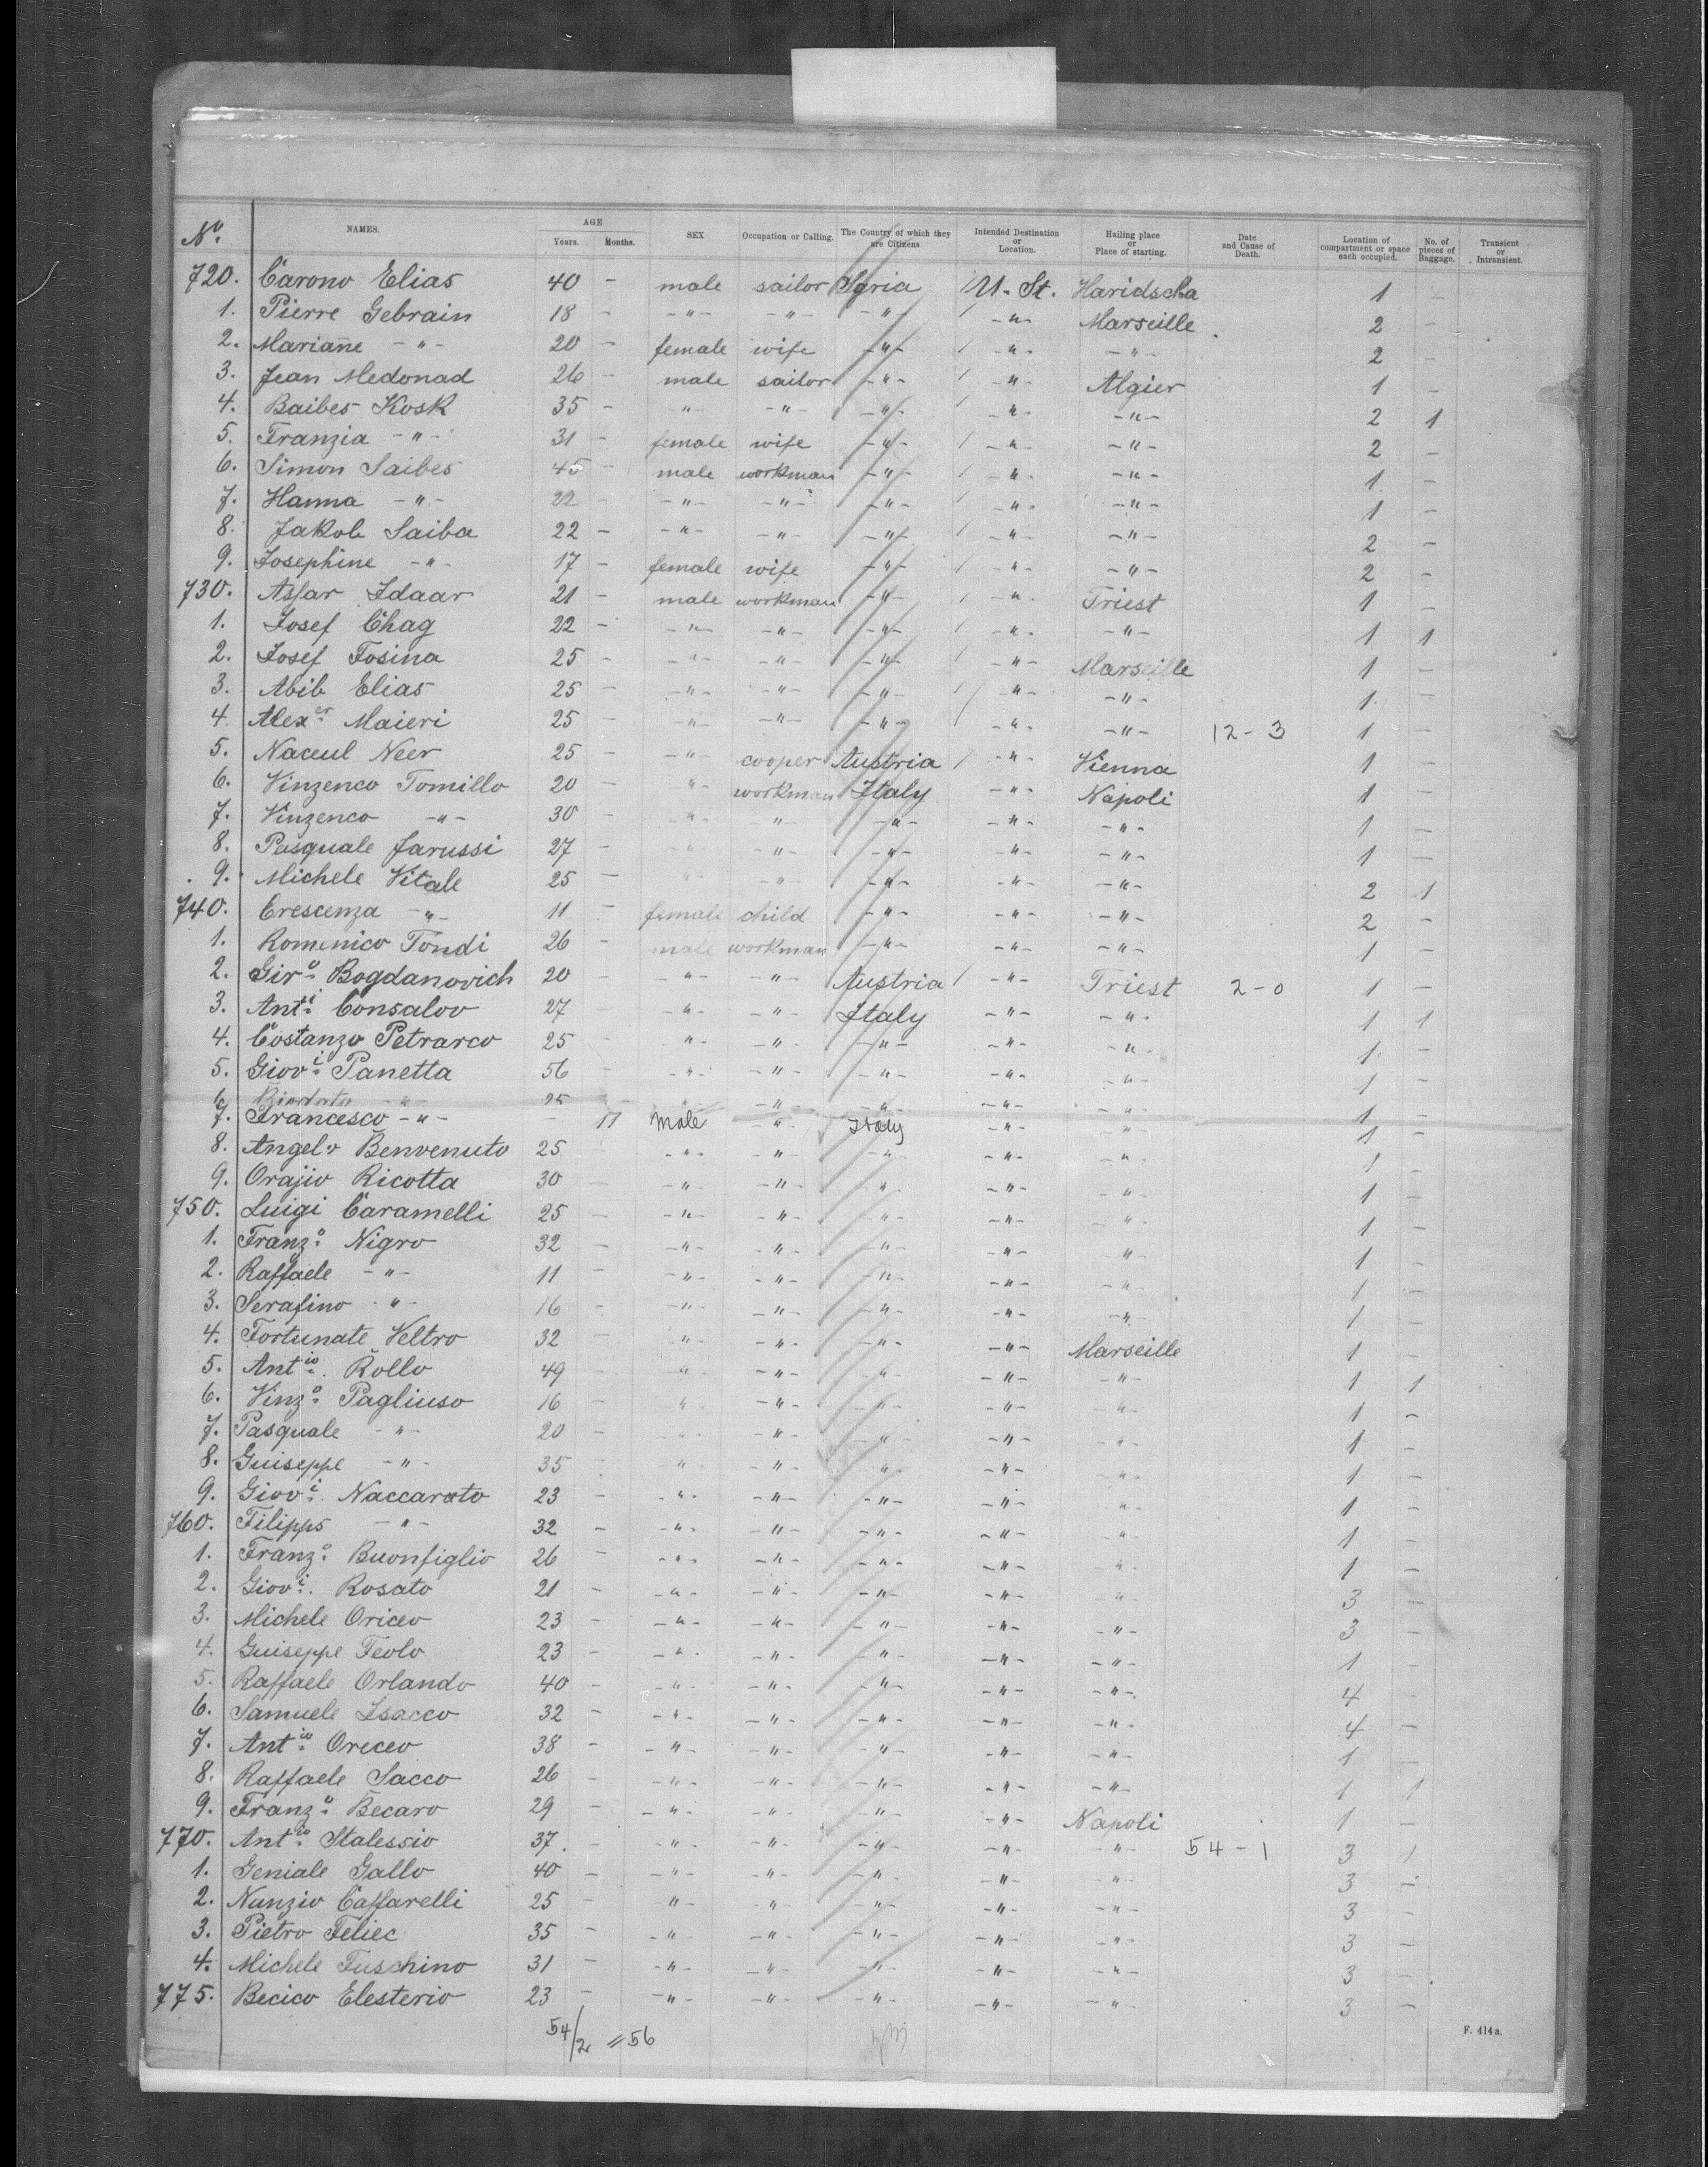 No. NAMES. AGE Years. Months. SEX Occupation or Calling. The Country of which they are Citizens Intended Destination or Location. Hailing place or Place of starting. Date and Cause of Death. Location of compartment or space each occupied. No. of pieces of Baggage. Transient or Intransient.
720. Carono Elias 40 - male sailor Syria / U. St. Haridscha 1 -
1. Pierre Gebrain 18 - -"- -"- -"- / -"- Marseille 2 -
2. Marianne -"- 20 - female wife -"- / -"- -"- 2 -
3. Jean Medonad 26 - male sailor -"- / -"- Algier 1 -
4. Baibes Kosk 35 - -"- -"- -"- / -"- -"- 2 1
5. Franzia -"- 31 - female wife -"- / -"- -"- 2 -
6. Simon Saibes 45 - male workman -"- / -"- -"- 1 -
7. Hanna -"- 22 - -"- -"- -"- / -"- -"- 1 -
8. Jakob Saiba 22 - -"- -"- -"- / -"- -"- 2 -
9. Josephine -"- 17 - female wife -"- / -"- -"- 2 -
730. Assar Idaar 21 - male workman -"- / -"- Triest 1 -
1. Josef Chag 22 - -"- -"- -"- / -"- -"- 1 1
2. Josef Fosina 25 - -"- -"- -"- / -"- Marseille 1 -
3. Abib Elias 25 - -"- -"- -"- / -"- -"- 1 -
4. Alexer Maieri 25 - -"- -"- -"- / -"- -"- 12-3 1 -
5. Naceul Neer 25 - -"- cooper Austria / -"- Vienna 1 -
6. Vinzenco Tomillo 20 - -"- workman Italy -"- Napoli 1 -
7. Vinzenco -"- 30 - -"- -"- -"- -"- -"- 1 -
8. Pasquale Jarussi 27 - -"- -"- -"- -"- -"- 1 -
9. Michele Vitale 25 - -"- -"- -"- -"- -"- 2 1
740. Crescenza -"- 11 - female child -"- -"- -"- 2 -
1. Romenico Tondi 26 - male workman -"- -"- -"- 1 -
2. Giro Bogdanovich 20 - -"- -"- Austria / -"- Triest 2-0 1 -
3. Anti Consalov 27 - -"- -"- Italy -"- -"- 1 1
4. Costanzo Petrarco 25 - -"- -"- -"- -"- -"- 1 -
5. Giovi Panetta 56 - -"- -"- -"- -"- -"- 1 -
6. -"- 25 -"- -"- -"- -"- -"- 1 -
7. Francesco -"- - 11 Male -"- Italy -"- -"- 1 -
8. Angelo Benvenuto 25 - -"- -"- -"- -"- -"- 1 -
9. Orajio Ricotta 30 - -"- -"- -"- -"- -"- 1 -
750. Luigi Caramelli 25 - -"- -"- -"- -"- -"- 1 -
1. Franzo Nigro 32 - -"- -"- -"- -"- -"- 1 -
2. Raffaele -"- 11 - -"- -"- -"- -"- -"- 1 -
3. Serafino -"- 16 - -"- -"- -"- -"- -"- 1 -
4. Fortunate Veltro 32 - -"- -"- -"- -"- Marseille 1 -
5. Antio Rollo 49 - -"- -"- -"- -"- -"- 1 1
6. Vinzo Pagliuso 16 - -"- -"- -"- -"- -"- 1 -
7. Pasquale -"- 20 - -"- -"- -"- -"- -"- 1 -
8. Guiseppe -"- 35 - -"- -"- -"- -"- -"- 1 -
9. Giovi Naccarato 23 - -"- -"- -"- -"- -"- 1 -
760. Filipps -"- 32 - -"- -"- -"- -"- -"- 1 -
1. Franzo Buonfiglio 26 - -"- -"- -"- -"- -"- 1 -
2. Giovi Rosato 21 - -"- -"- -"- -"- -"- 3 -
3. Michele Oriceo 23 - -"- -"- -"- -"- -"- 3 -
4. Guiseppe Feolo 23 - -"- -"- -"- -"- -"- 1 -
5. Raffaele Orlando 40 - -"- -"- -"- -"- -"- 4 -
6. Samuele Isacco 32 - -"- -"- -"- -"- -"- 4 -
7. Antio Oreceo 38 - -"- -"- -"- -"- -"- 1 -
8. Raffaele Sacco 26 - -"- -"- -"- -"- -"- 1 1
9. Franzo Becaro 29 - -"- -"- -"- -"- Napoli 1 -
770. Antio Stalessio 37 - -"- -"- -"- -"- -"- 54-1 3 1
1. Geniale Gallo 40 - -"- -"- -"- -"- -"- 3 -
2. Nunzio Caffarelli 25 - -"- -"- -"- -"- -"- 3 -
3. Pietro Feliec 35 - -"- -"- -"- -"- -"- 3 -
4. Michele Fuschino 31 - -"- -"- -"- -"- -"- 3 -
775. Becico Elesterio 23 - -"- -"- -"- -"- -"- 3 -
54/2 = 56
F. 414 a.